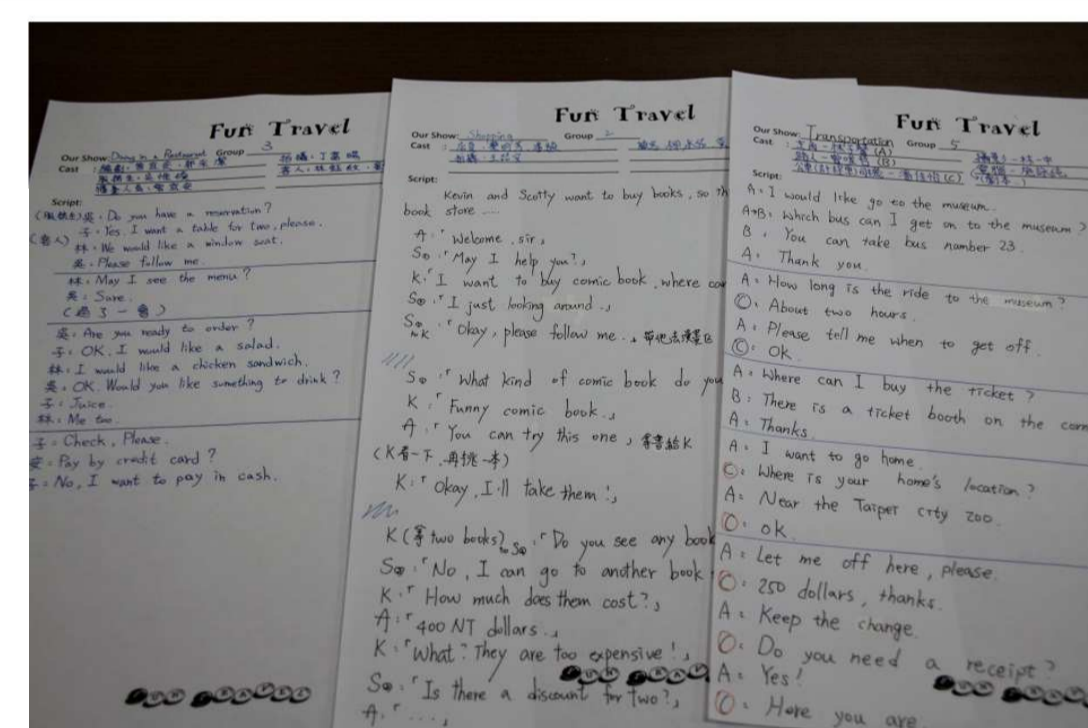 Fun Travel
Our Show: Dining in a Restaurant Group 3
Cast :
Script:
(服務生)吳: Do you have a reservation?
子: Yes. I want a table for two, please.
(客人) 林: We would like a window seat.
吳: Please follow me.
林: May I see the menu?
吳: Sure.
(過了一會)
吳: Are you ready to order?
子: OK. I would like a salad.
林: I would like a chicken sandwich.
吳: OK. Would you like something to drink?
子: Juice.
林: Me too.
子: Check, Please.
Pay by credit card?
子: No, I want to pay in cash.
Fun Travel
Fun Travel
Our Show: Shopping Group 2
Cast
Script:
Kevin and Scotty want to buy books, so
book store ....
A:「Welcome, sir」
「May I help you?」
K:「I want to buy comic book, where
「I just looking around.」
「Okay, please follow me.」
「What kind of comic book do you
K:「Funny comic book.」
A:「You can try this one」拿書給K
(K看一下,再挑一本)
K:「Okay, I'll take them!」
K(拿two books) 「Do you see any book
「No, I can go to another book
K:「How much does them cost?」
A:「400 NT dollars.」
K:「What? They are too expensive!」
「Is there a discount for two?」
A:「....」
Fun Travel
Fun Travel
Our Show: Transportation Group 5
Cast :
Script:
A: I would like go to the museum.
A→B: Which bus can I get on to the museum?
B: You can take bus namber 23.
A: Thank you.
A: How long is the ride to the museum?
C: About two hours.
A: Please tell me when to get off.
C: Ok.
A: Where can I buy the ticket?
B: There is a ticket booth on the
A: Thanks.
A: I want to go home.
C: Where is your home's location?
A: Near the Taiper city zoo.
C: ok.
A: Let me off here, please.
C: 250 dollars, thanks.
A: Keep the change.
C: Do you need a receipt?
A: Yes!
C: Here you are
Fun